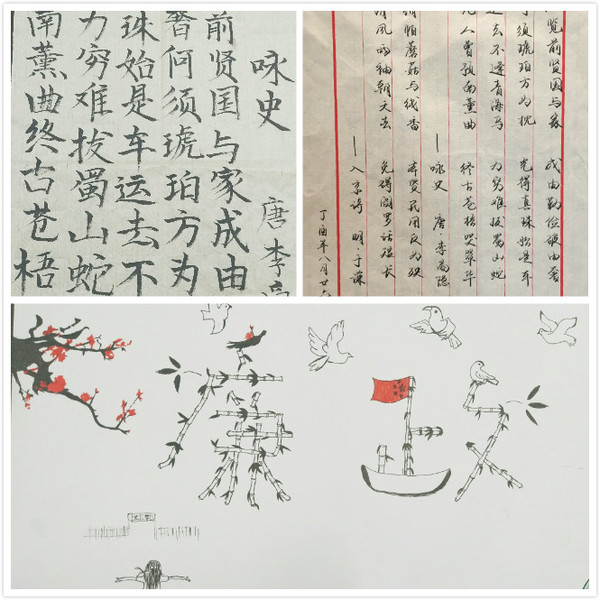 咏史 唐李
前贤国与家成由
奢何须琥珀方为
珠始是车运去不
力穷难拔蜀山蛇
南薰曲终古苍梧
览前贤国与家 成由勤俭破由奢
须琥珀方为枕 岂得真珠始是车
去不逢青海马 力穷难拔蜀山蛇
几人曾预南薰曲 终古苍梧哭翠华
—咏史 唐 李商隐
绢帕蘑菇与线香 本资民用反为殃
清风两袖朝天去 免得闾阎话短长
—入京诗 明·于谦
丁酉年八月廿六
廉政